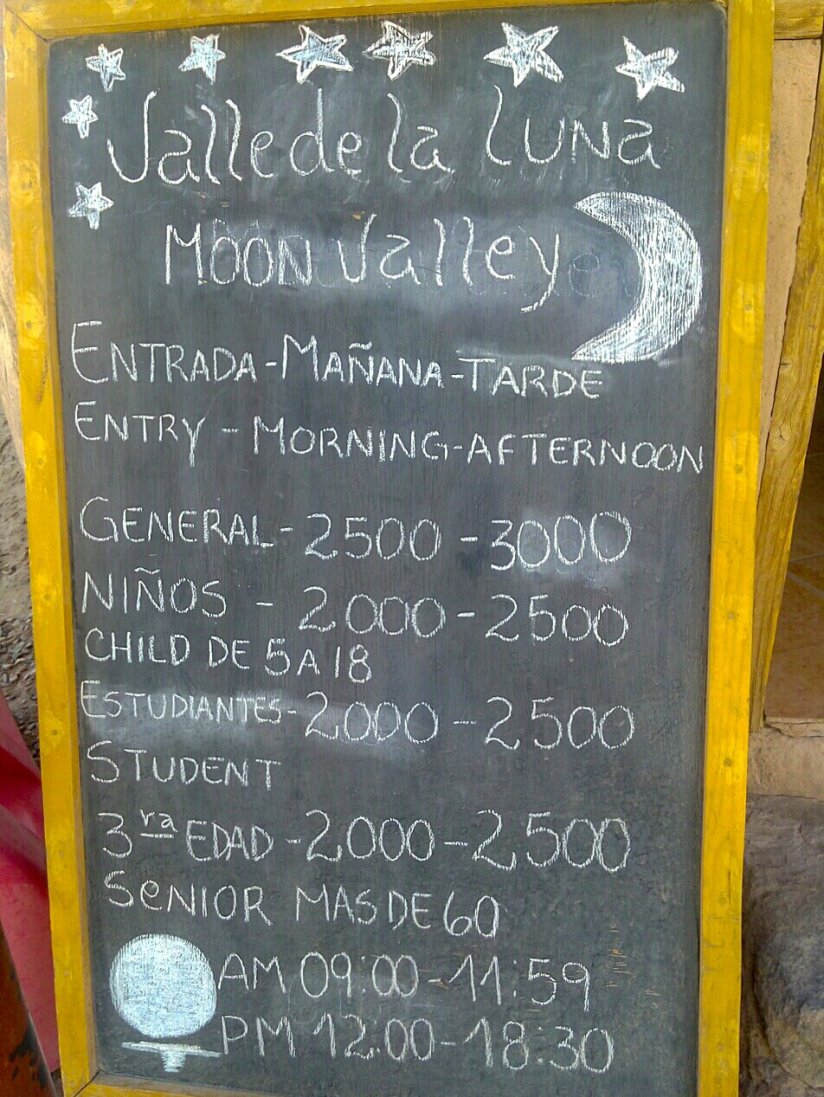 Valle de la Luna
Moon Valley
ENTRADA-MAÑANA-TARDE
ENTRY-MORNING-AFTERNOON
GENERAL-2500-3000
NIÑOS - 2000-2500
CHILD DE 5 A 18
ESTUDIANTES-2000-2500
STUDENT
3ra EDAD-2000-2500
SENIOR MAS DE 60
AM 09:00-11:59
PM 12:00-18:30